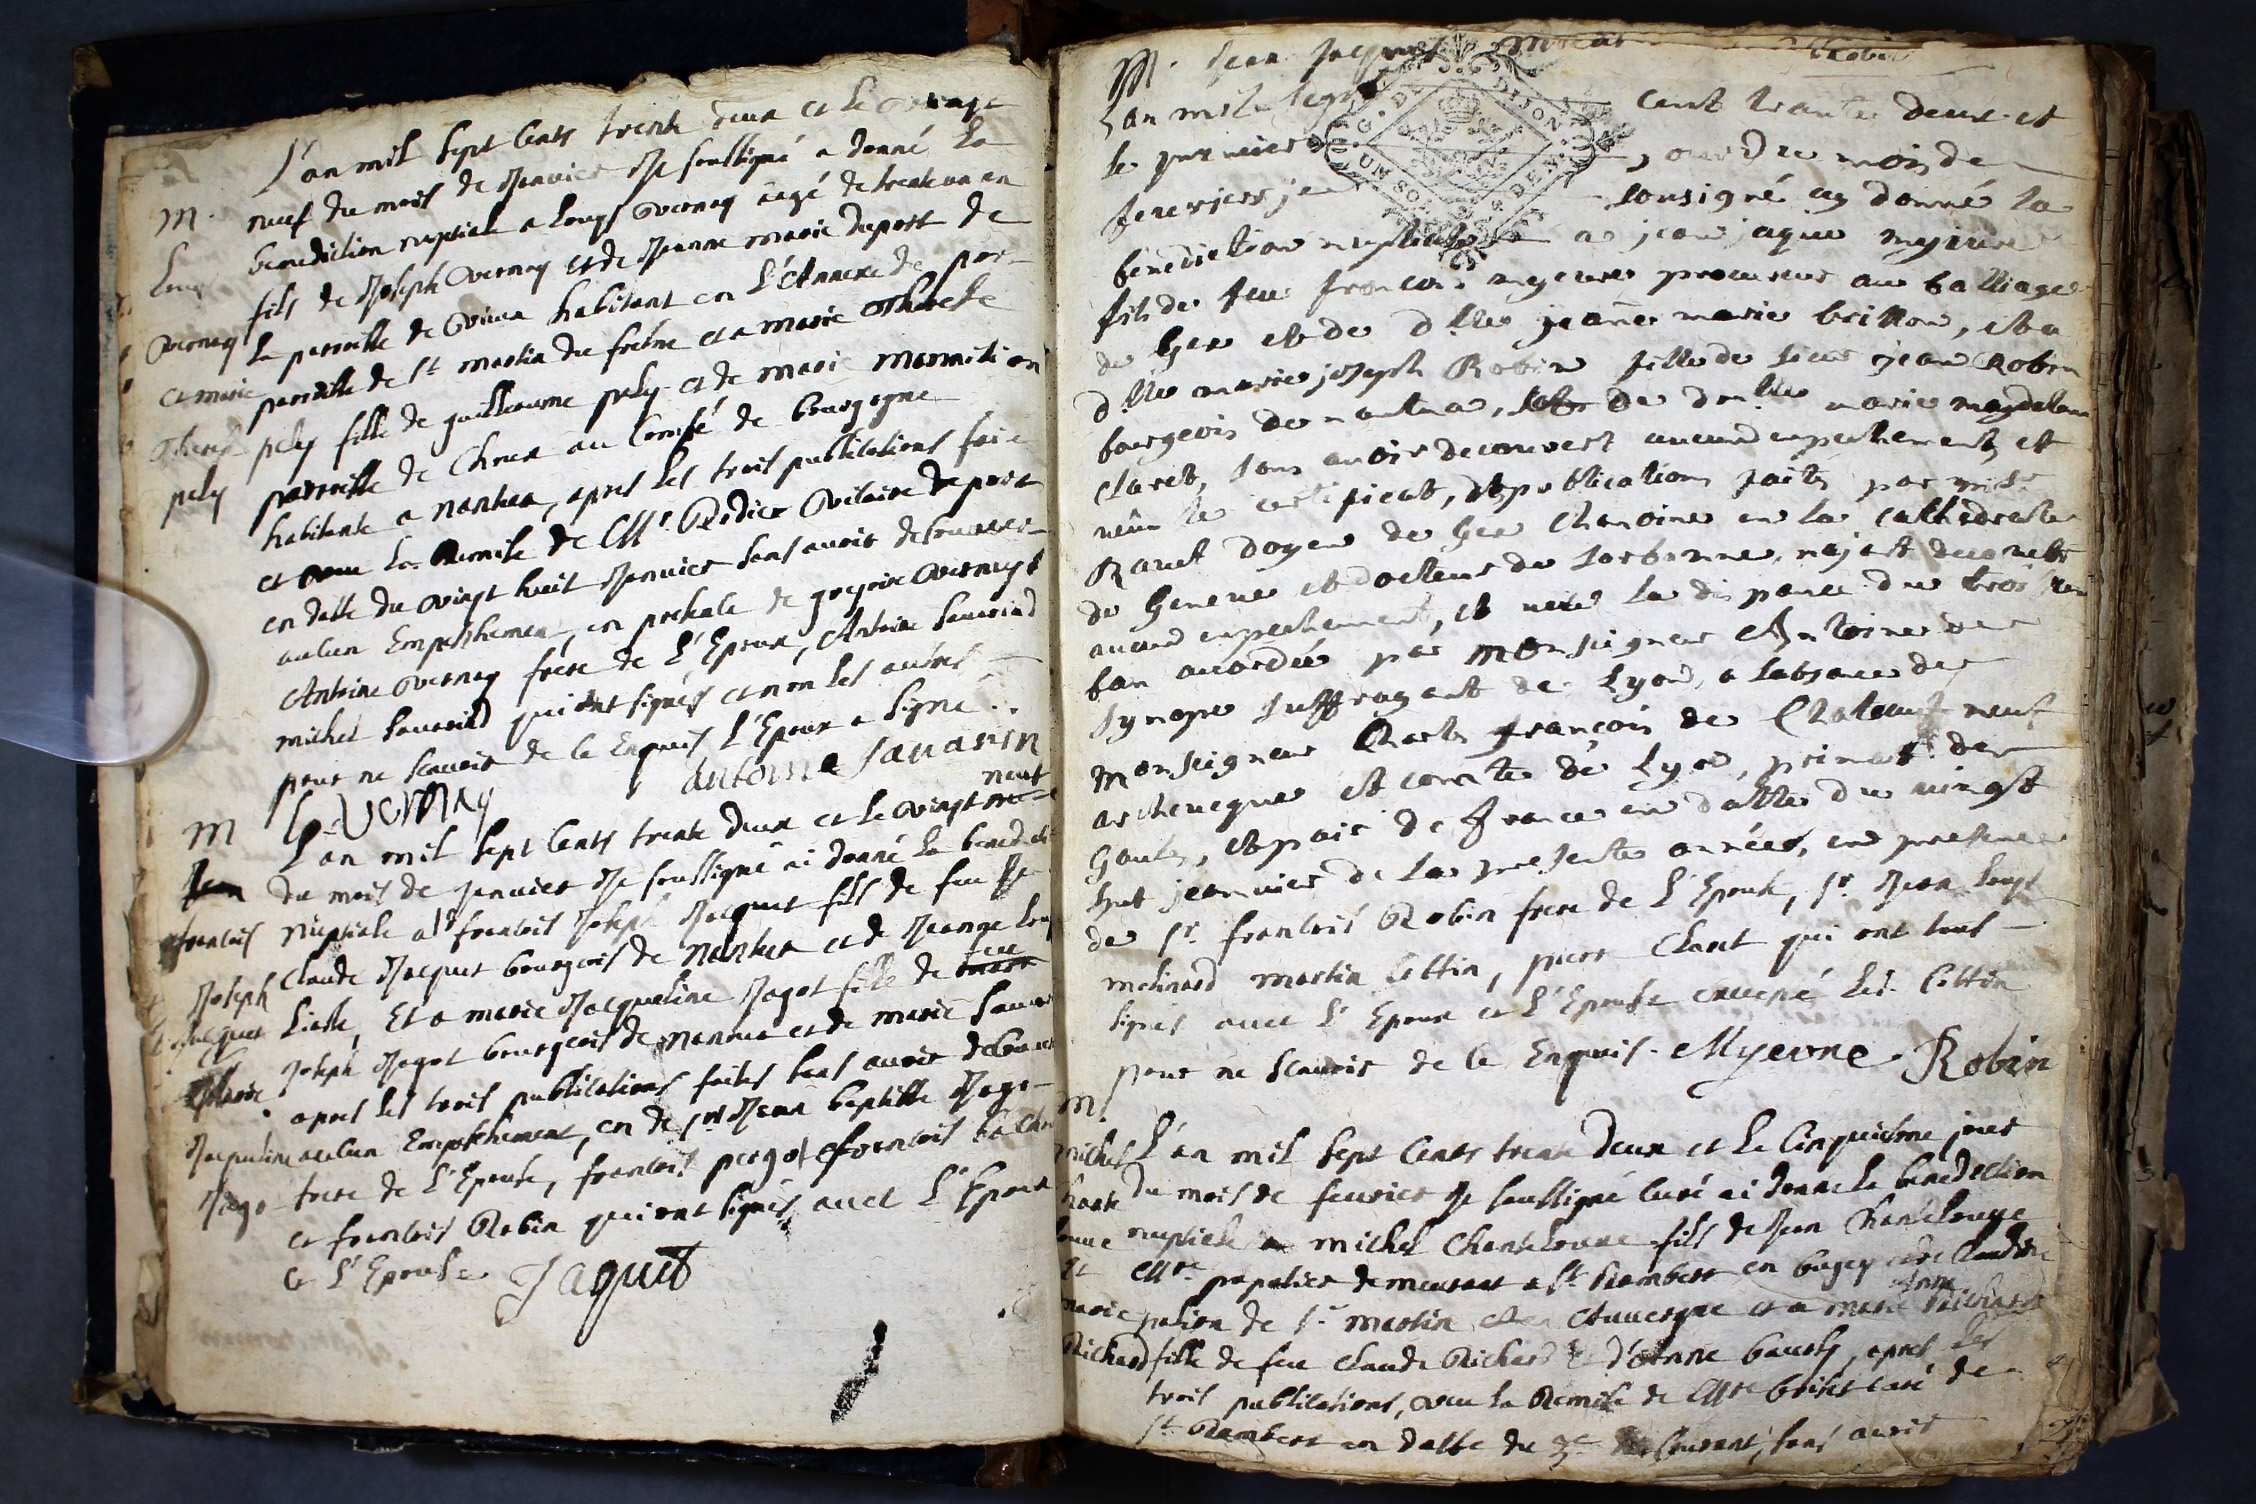 L'an mil sept cents trente deux et le vingt
M. neuf du mois de Janvier Je soussigné a donné la
Louys benediction nuptiale a Louys Verney aagé de trente un an
fils de Joseph Verney et de Jeanne marie duport de
Verney la parroisse de Vieux habitant en L'Annexe de port
et marie parroisse de St martin du fresne et a marie Therese
Therese pely fille de guillaume pely et de marie
pely parroisse de Choux au Comté de bourgogne
habitante a nantua, apres les trois publications faite
et veu la Remise de Mr. Rodier Vicaire de port
en datte du vingt huit Janvier sans avoir descouvert
aucun Empeschement, en presence de gregoire Verney et
Antoine Verney frere de L'Epoux, Antoine Sauarind
michel Sauarind qui ont signés et non les autres
pour ne scavoir de ce Enquis L'Epoux a signé.
L. Verney antoine Sauarin
M L'an mil sept cents trente deux et le vingt neuf
Jean du mois de Janvier Je soussigné ai donné la benedicti
francois nuptiale a Sr francois Joseph Jacquet fils de feu Sr
Joseph Claude Jacquet bourgeois de Nantua et de Jeanne Louy
Jacquet Liasse, Et a marie Jacqueline Jagot fille de feu
et Joseph Jagot bourgeois de Nantua et de marie Sauar
Marie apres les trois publications faites sans avoir decouvert
Jacqueline aucun Empeschement, en de Sr Jean baptiste Jago
Jago frere de L'Epouse, francois pergot francois
et francois Robin qui ont signés avec L'Epoux
et L'Epouse Jaquet
M. Jean Jacques Robin
L'an mil sept cent trante deux et
le premier jour du mois de
fevrier je sousigné ay donné la
benediction nuptiale a jean jaque myeure
fils de feu francois myeure procureur au balliage
de Gex et de d.lle jeanne marie brillon, et a
d.lle marie joseph Robin fille de sieur jean Robin
bourgeois de nantua, et de dm.lle marie magdelain
Claret, sans avoir decouvert aucund enpechement, et
veüu le certificat, de publications faites par mre
Ravet doyen de Gex Chanoine en la cathedralle
de Geneve et docteur de sorbonne, n'ajant decouvert
aucund enpechement, et veüe la dispance du troisieme
ban accordée par Monseigneur Antoine de
Synope suffragant de Lyon, a labsance de
Monseigneur Charle françois de Chateauneuf
archeveque et comte de Lyon, primat de
Gaules, et pair de france en datte du vingt
huit jeanvier de la presente année, en presence
de Sr. francois Robin frere de L'Epouse, Sr. Jean Louys
molinard martin Cottin, pierre Claret qui ont tous
signés avec L'Epoux et L'Epouse excepté led. Cottin
pour ne scavoir de ce Enquis. Myeure Robin
M.
michel L'an mil sept cents trente deux et le cinquieme jour
chante du mois de fevrier Je soussigné curé ai donné la benediction
louve nuptiale a michel Chantelouve fils de Jean Chantelouve
et Mre. papetier demeurant a St. Rambert en bugey et de Claudine
marie de St. martin en Auvergne et a marie Anne Richard
Richard fille de feu Claude Richard et d'Anne bausly, apres les
trois publications, veu la Remise de Mre curé de
St. Rambert en datte du 3e du Courant, sans avoir